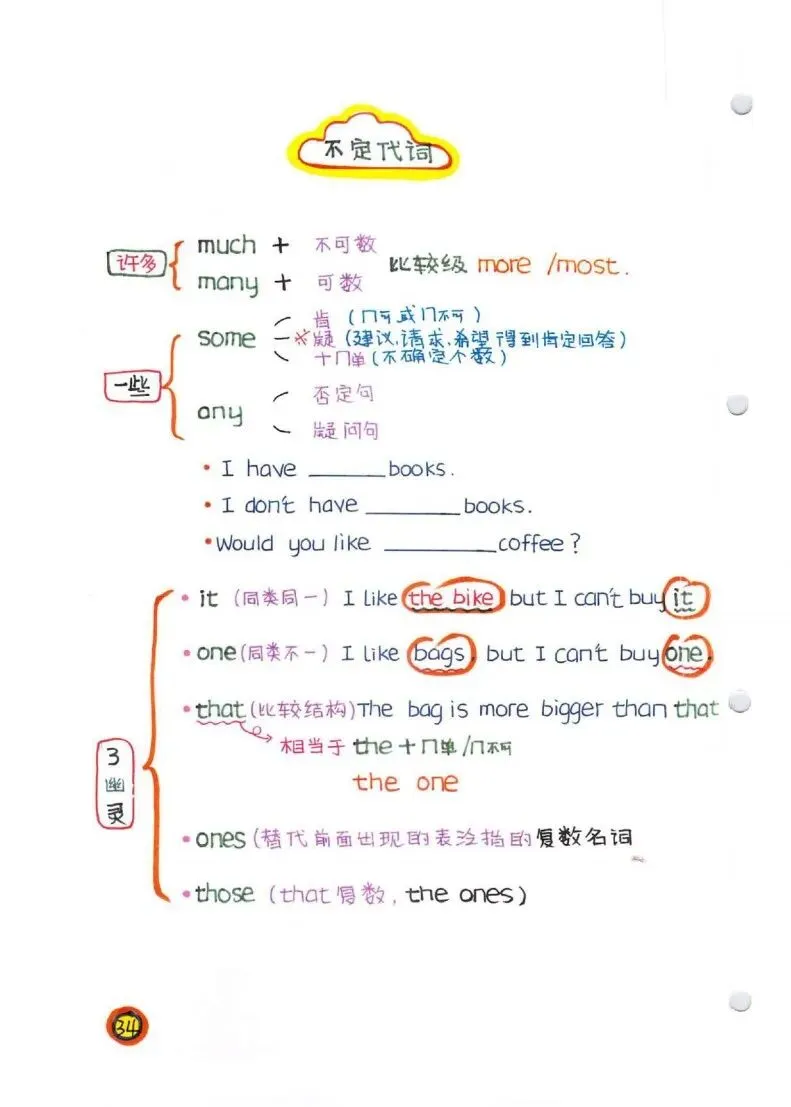 不定代词
许多
much + 不可数
many + 可数
比较级 more /most.
一些
some
肯 (n可 或 n不可)
※疑 (建议,请求,希望得到肯定回答)
十n单 (不确定个数)
any
否定句
疑问句
• I have ______ books.
• I don't have ______ books.
• Would you like ______ coffee?
3幽灵
• it (同类同一) I like the bike but I can't buy it
• one (同类不一) I like bags, but I can't buy one.
• that (比较结构) The bag is more bigger than that
相当于 the 十 n单/n不可
the one
• ones (替代前面出现的表泛指的复数名词
• those (that复数, the ones)
34